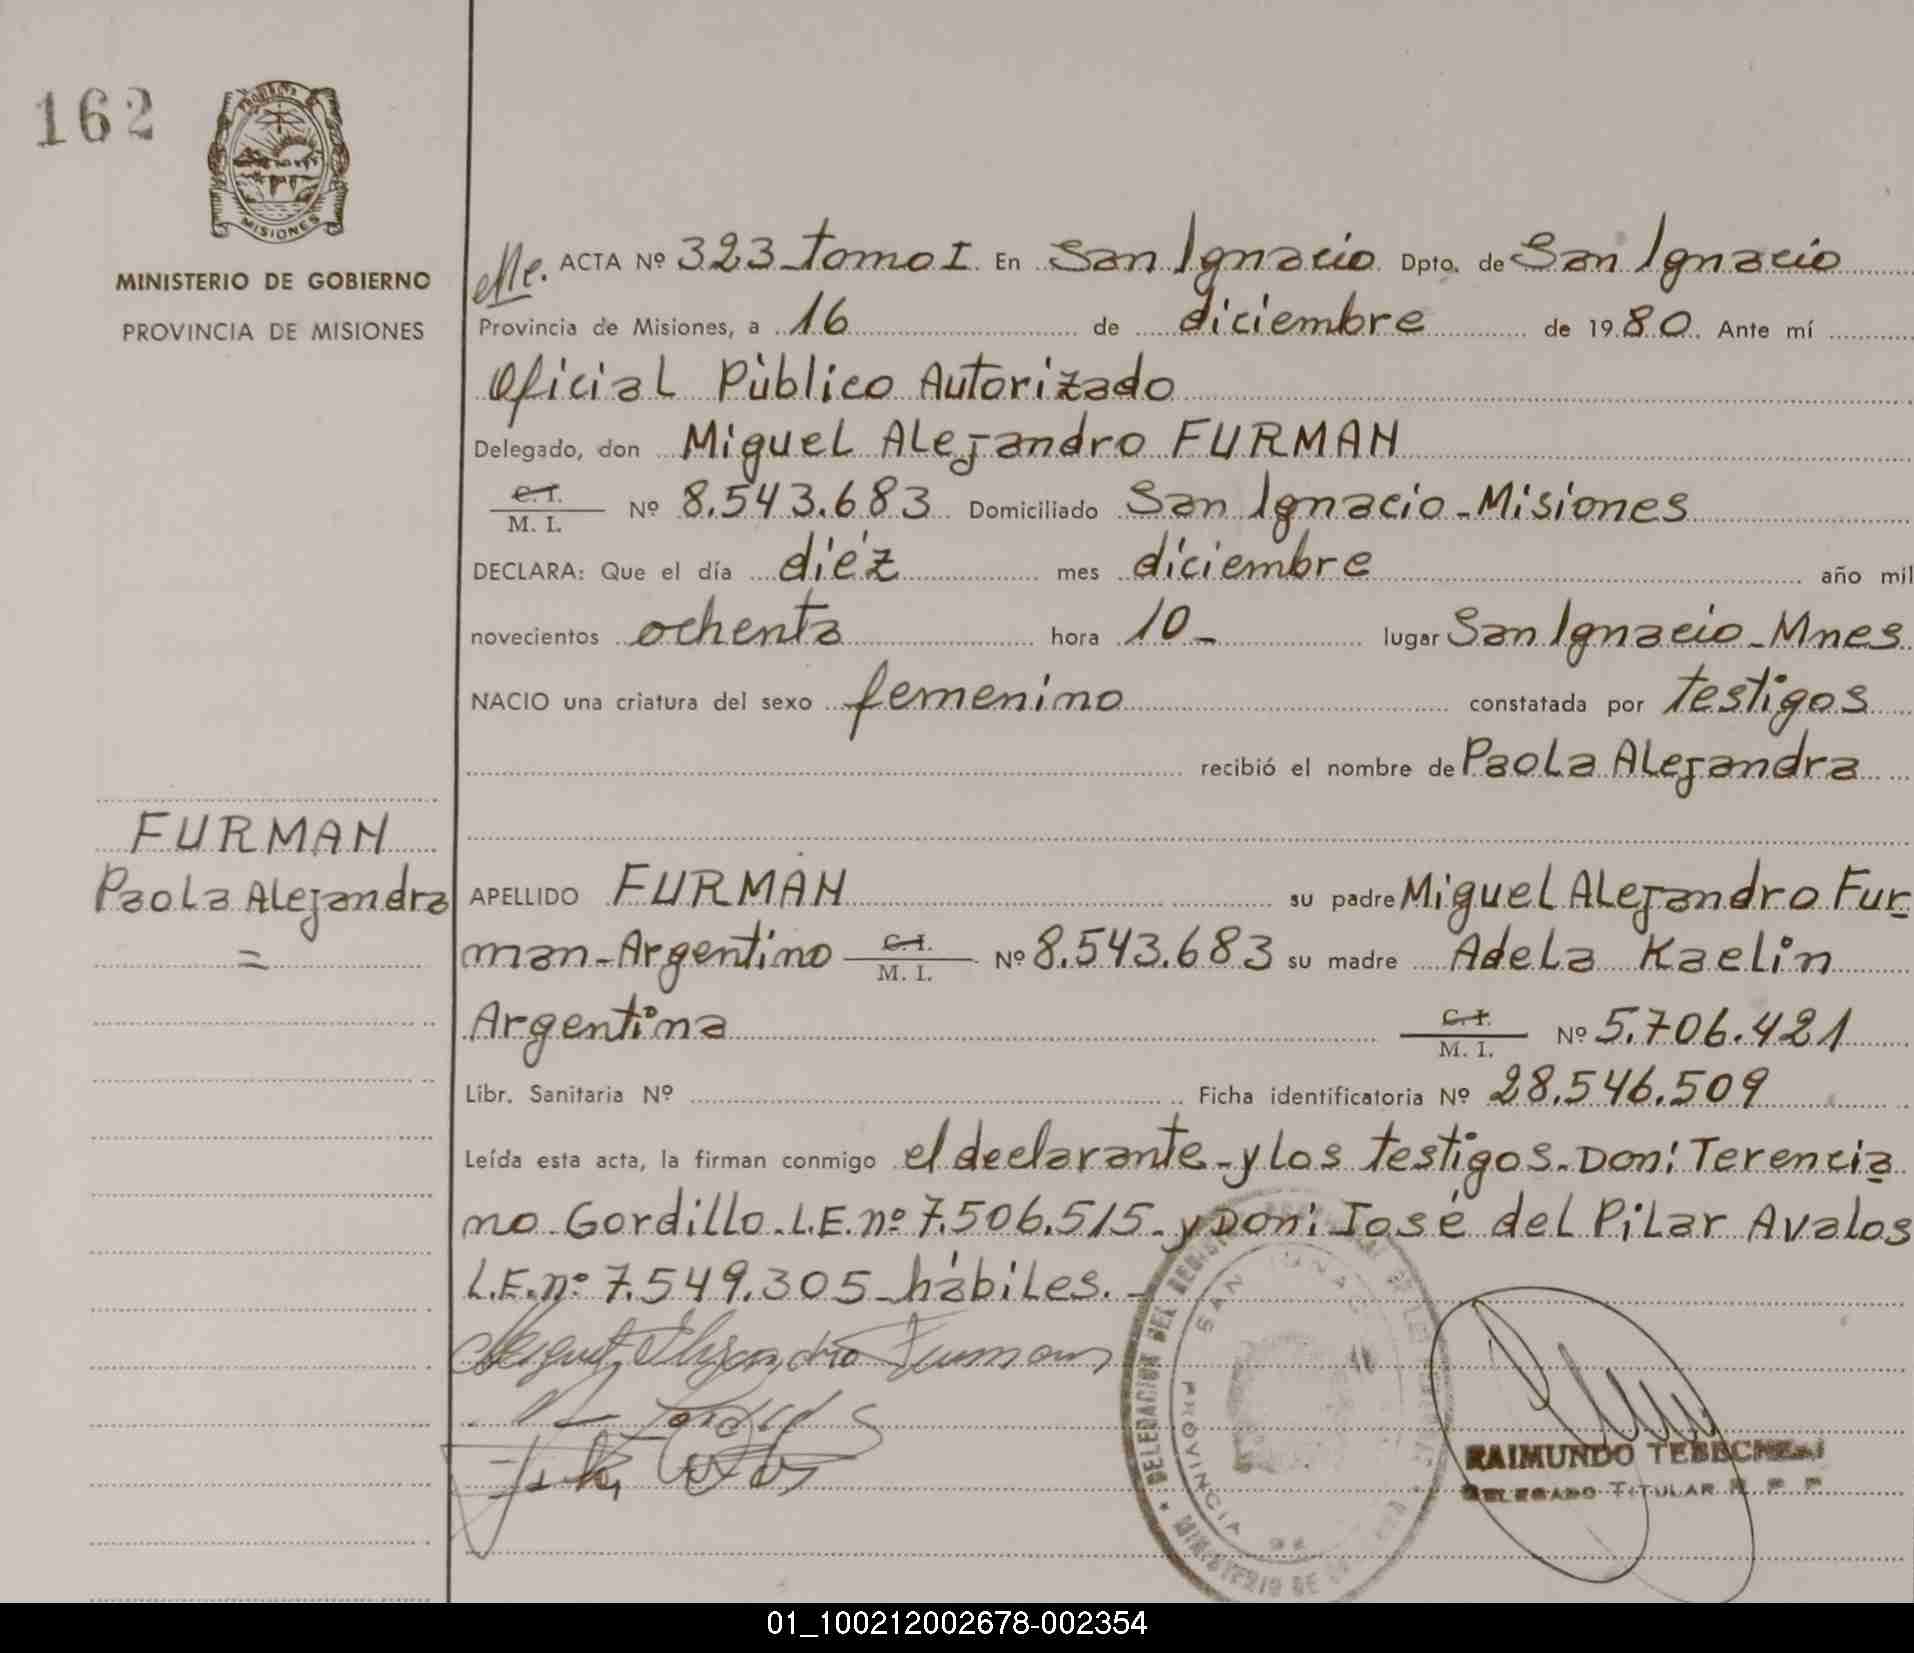 162
MISIONES
MINISTERIO DE GOBIERNO
PROVINCIA DE MISIONES
ACTA Nº 323 tomo I En San Ignacio Dpto. de San Ignacio
Provincia de Misiones, a 16 de diciembre de 1980. Ante mí
Oficial Público Autorizado
Delegado, don Miguel Alejandro FURMAN
C. I.
M. I. Nº 8.543.683 Domiciliado San Ignacio - Misiones
DECLARA: Que el día diéz mes diciembre año mil
novecientos ochenta hora 10 - lugar San Ignacio - Mnes
NACIO una criatura del sexo femenino constatada por testigos
recibió el nombre de Paola Alejandra
FURMAN
Paola Alejandra
=
APELLIDO FURMAN su padre Miguel Alejandro Fur-
man - Argentino C. I. M. I. Nº 8.543.683 su madre Adela Kaelin
Argentina C. I. M. I. Nº 5.706.421
Libr. Sanitaria Nº Ficha identificatoria Nº 28.546.509
Leída esta acta, la firman conmigo el declarante - y los testigos - Don: Terencia
no Gordillo - L.E. nº 7.506.515 - y Don: José del Pilar Avalos
L.E. nº 7.549.305 - hábiles. -
Miguel Alejandro Furman
DELEGACION DEL
SAN IGNACIO
PROVINCIA DE
MINISTERIO DE
RAIMUNDO
DELEGADO TITULAR
01_100212002678-002354